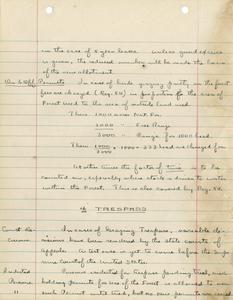 in the case of 5 year leases unless good excuse
is given, the reduced number will be made the basis
of the new allotment.
On & Off Permits In case of herds grazing partly in the forest
fees are charged (Reg. 54) in proportion to the area of
Forest used to the area of outside land used.
Thus 1000 acres Nat. For.
2000 " Free Range
3000 " Range for 1000 head.
Then 1000/3000 x 1000 = 333 head charged for
At other times the factor of time is to be
counted on, especially where stock is driven to water
within the Forest. This is also covered by Reg. 54.
4 TRESPASS
Court De- In cases of Grazing Trespass, variable de-
cisions cisions have been rendered by the state courts of
appeals. A test case is yet to come before the Su-
preme Court of the United States.
Indicted Persons indicted for Trespass pending trial, and
Persons holding permits for use of the Forest is allowed to use
" such Permit until trial, but no new permits are issued